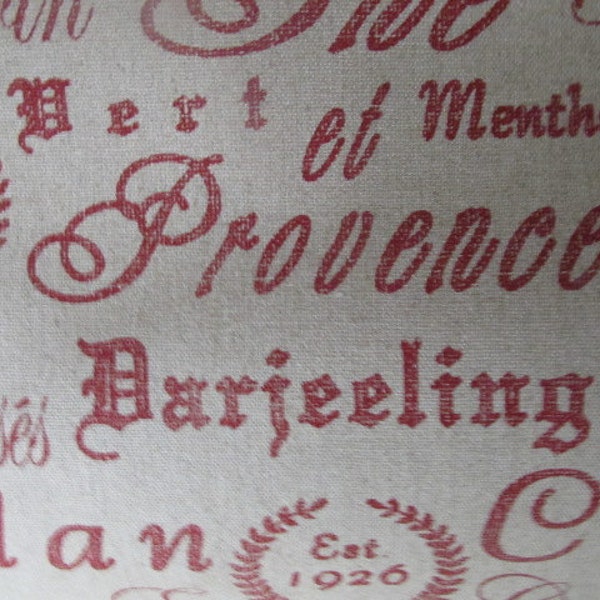 Vert et Menth
Provence
sés Darjeeling
lan
Est.
1926